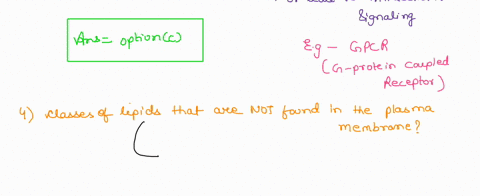 Signaling
Ans= option(c)
E.g - GPCR
(G-protein coupled
Receptor)
4) classes of lipids that are NOT found in the plasma
membrane?